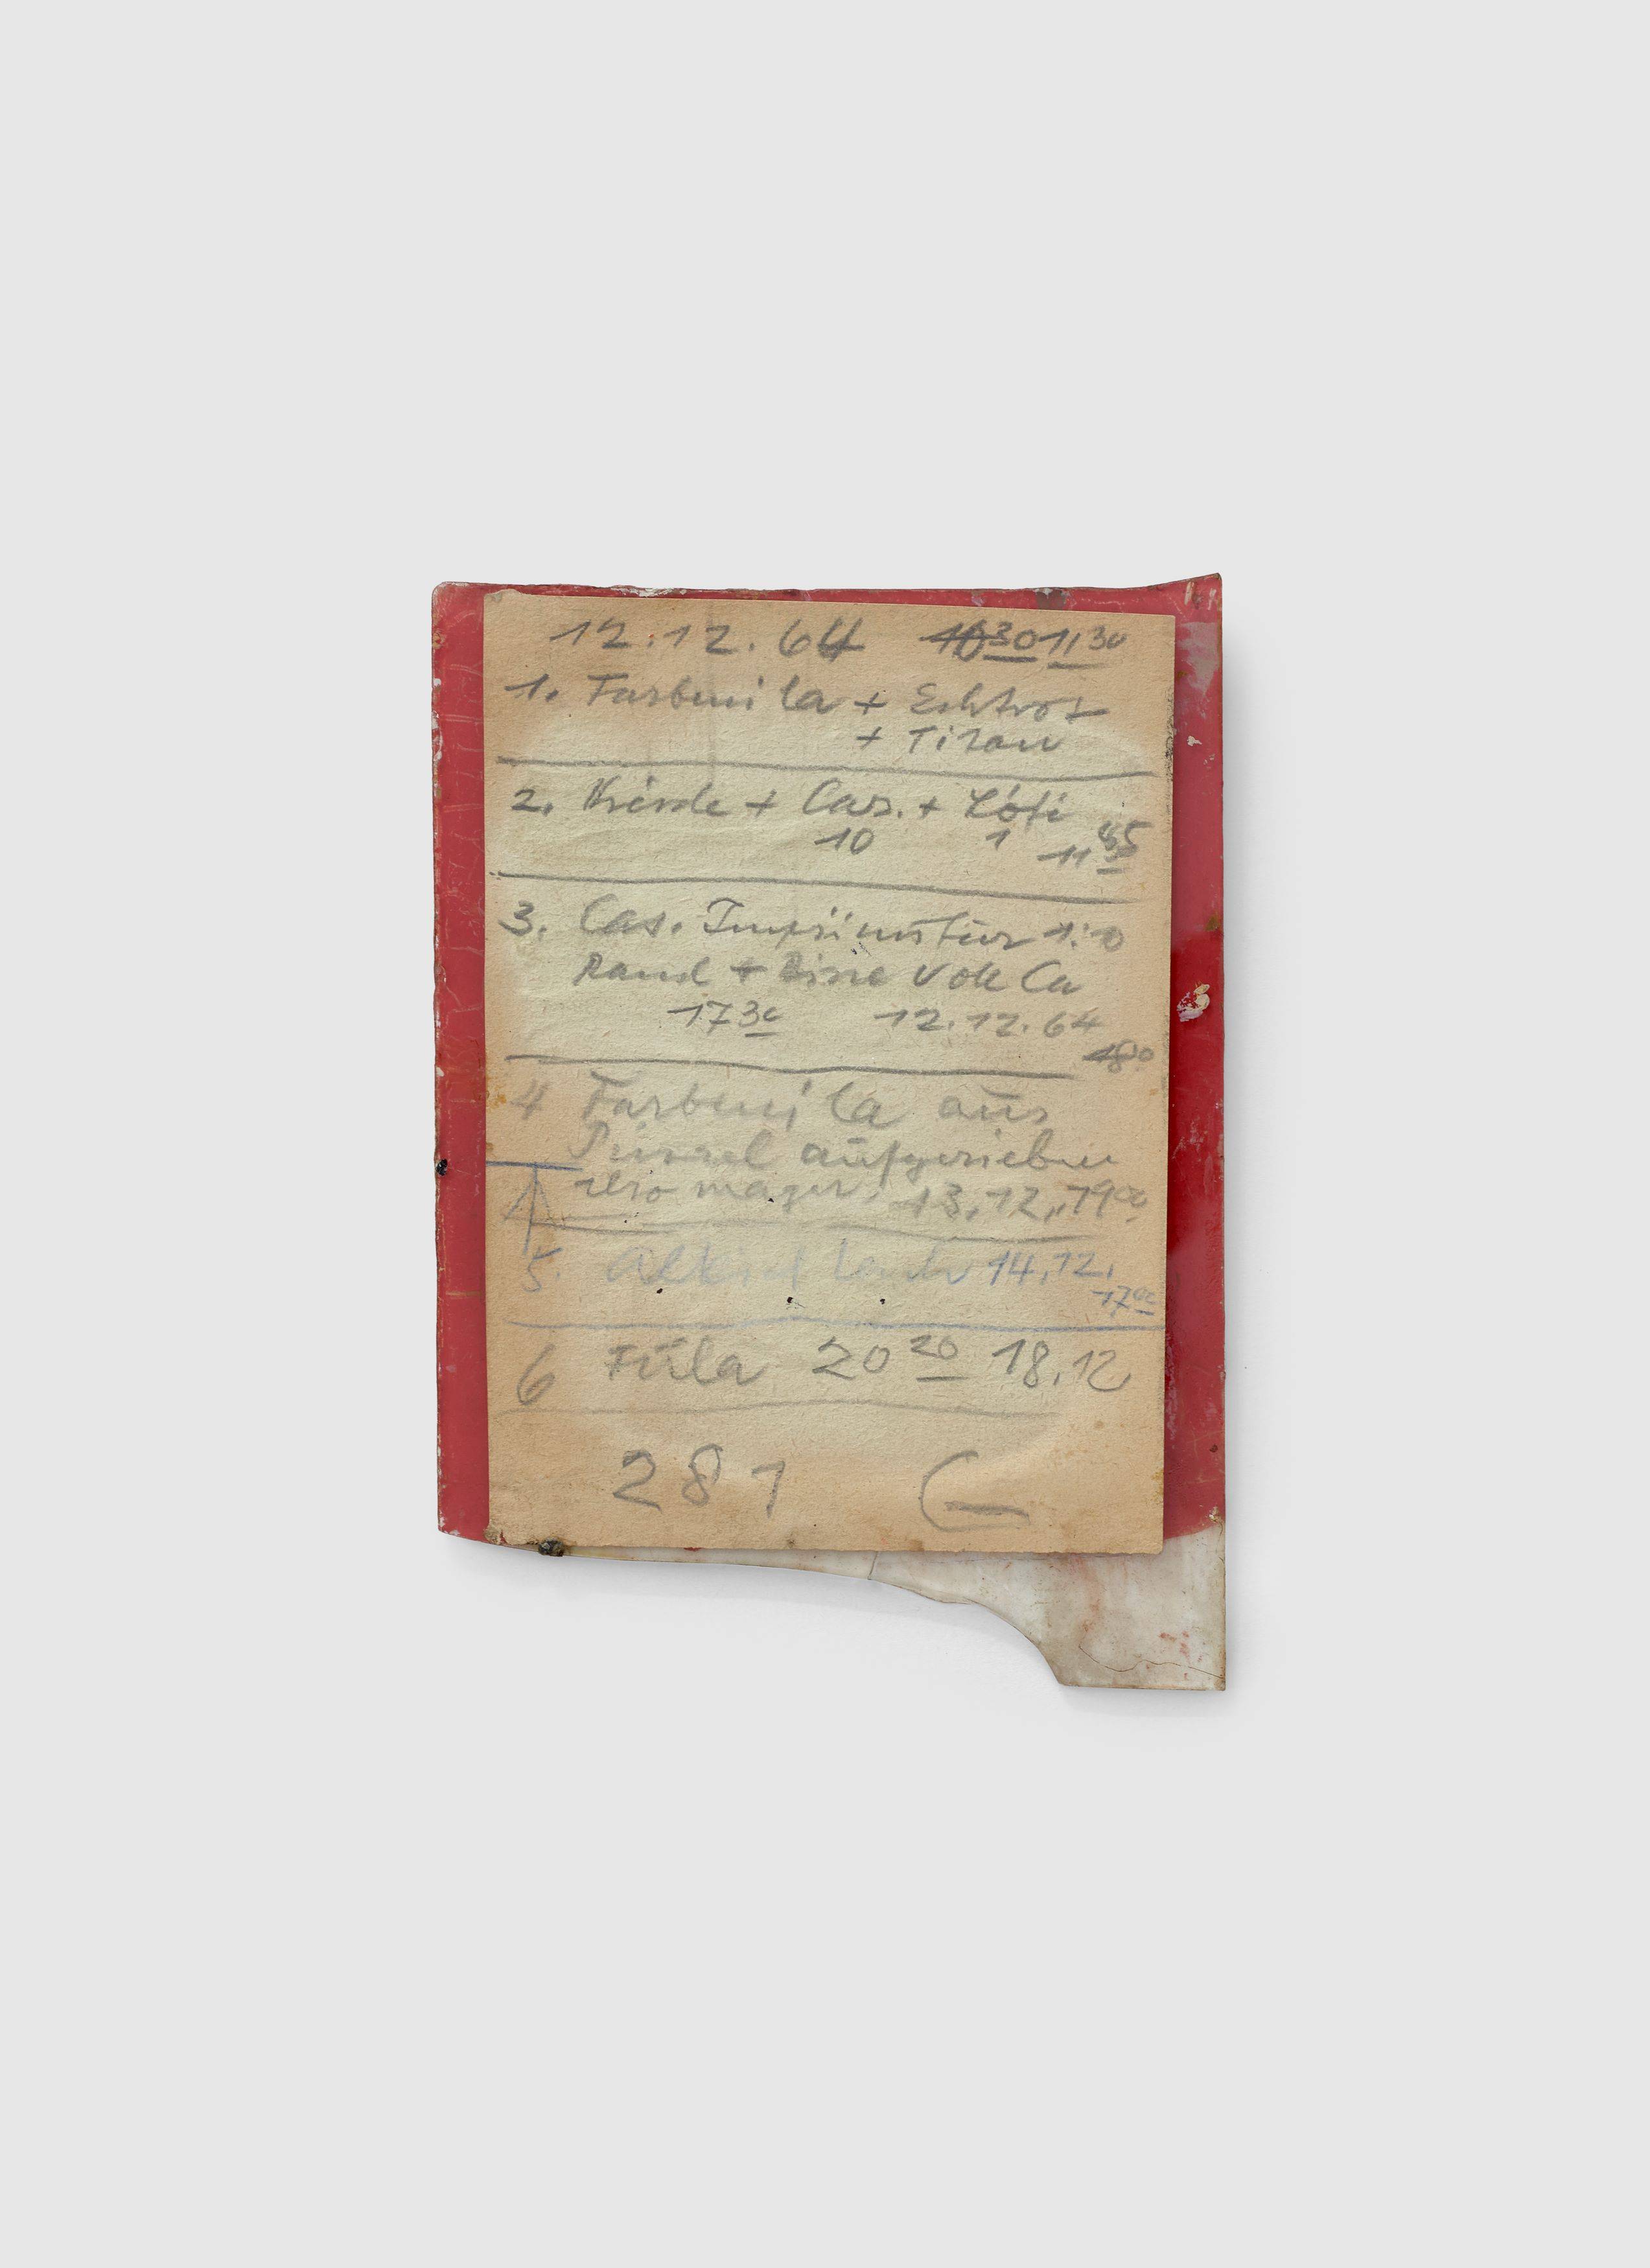 12.12.64 10 30 11 30
1. Farbmi la + Echtrot
+ Titan
2. Kreide + Cas. + Löfi
10 1 11 45
3. Cas. Imprimitür 1:10
Rand + Eine volle Ca
17 30 12.12.64
18 00
4 Farbmi la aus
Pinsel aufgerieben
also mager, 13.12. 19 00
5. 14.12.
17 00
6 Füla 20 20 18.12
281